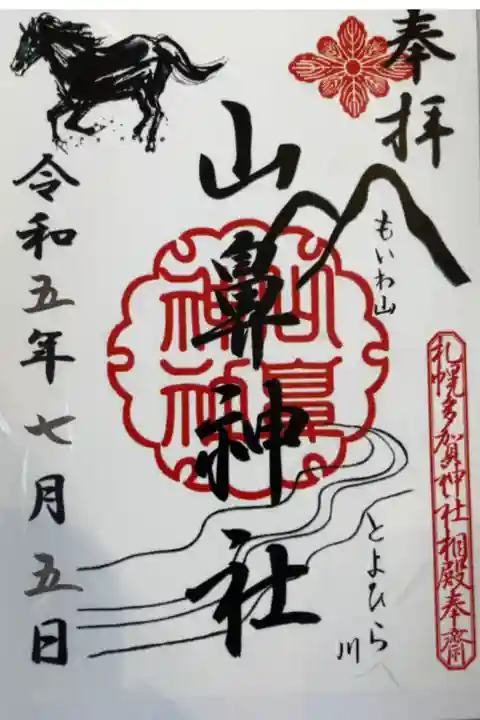 奉拝
もいわ山
札幌多賀神社相殿奉齋
山鼻神社
山鼻神社
とよひら川
令和五年七月五日